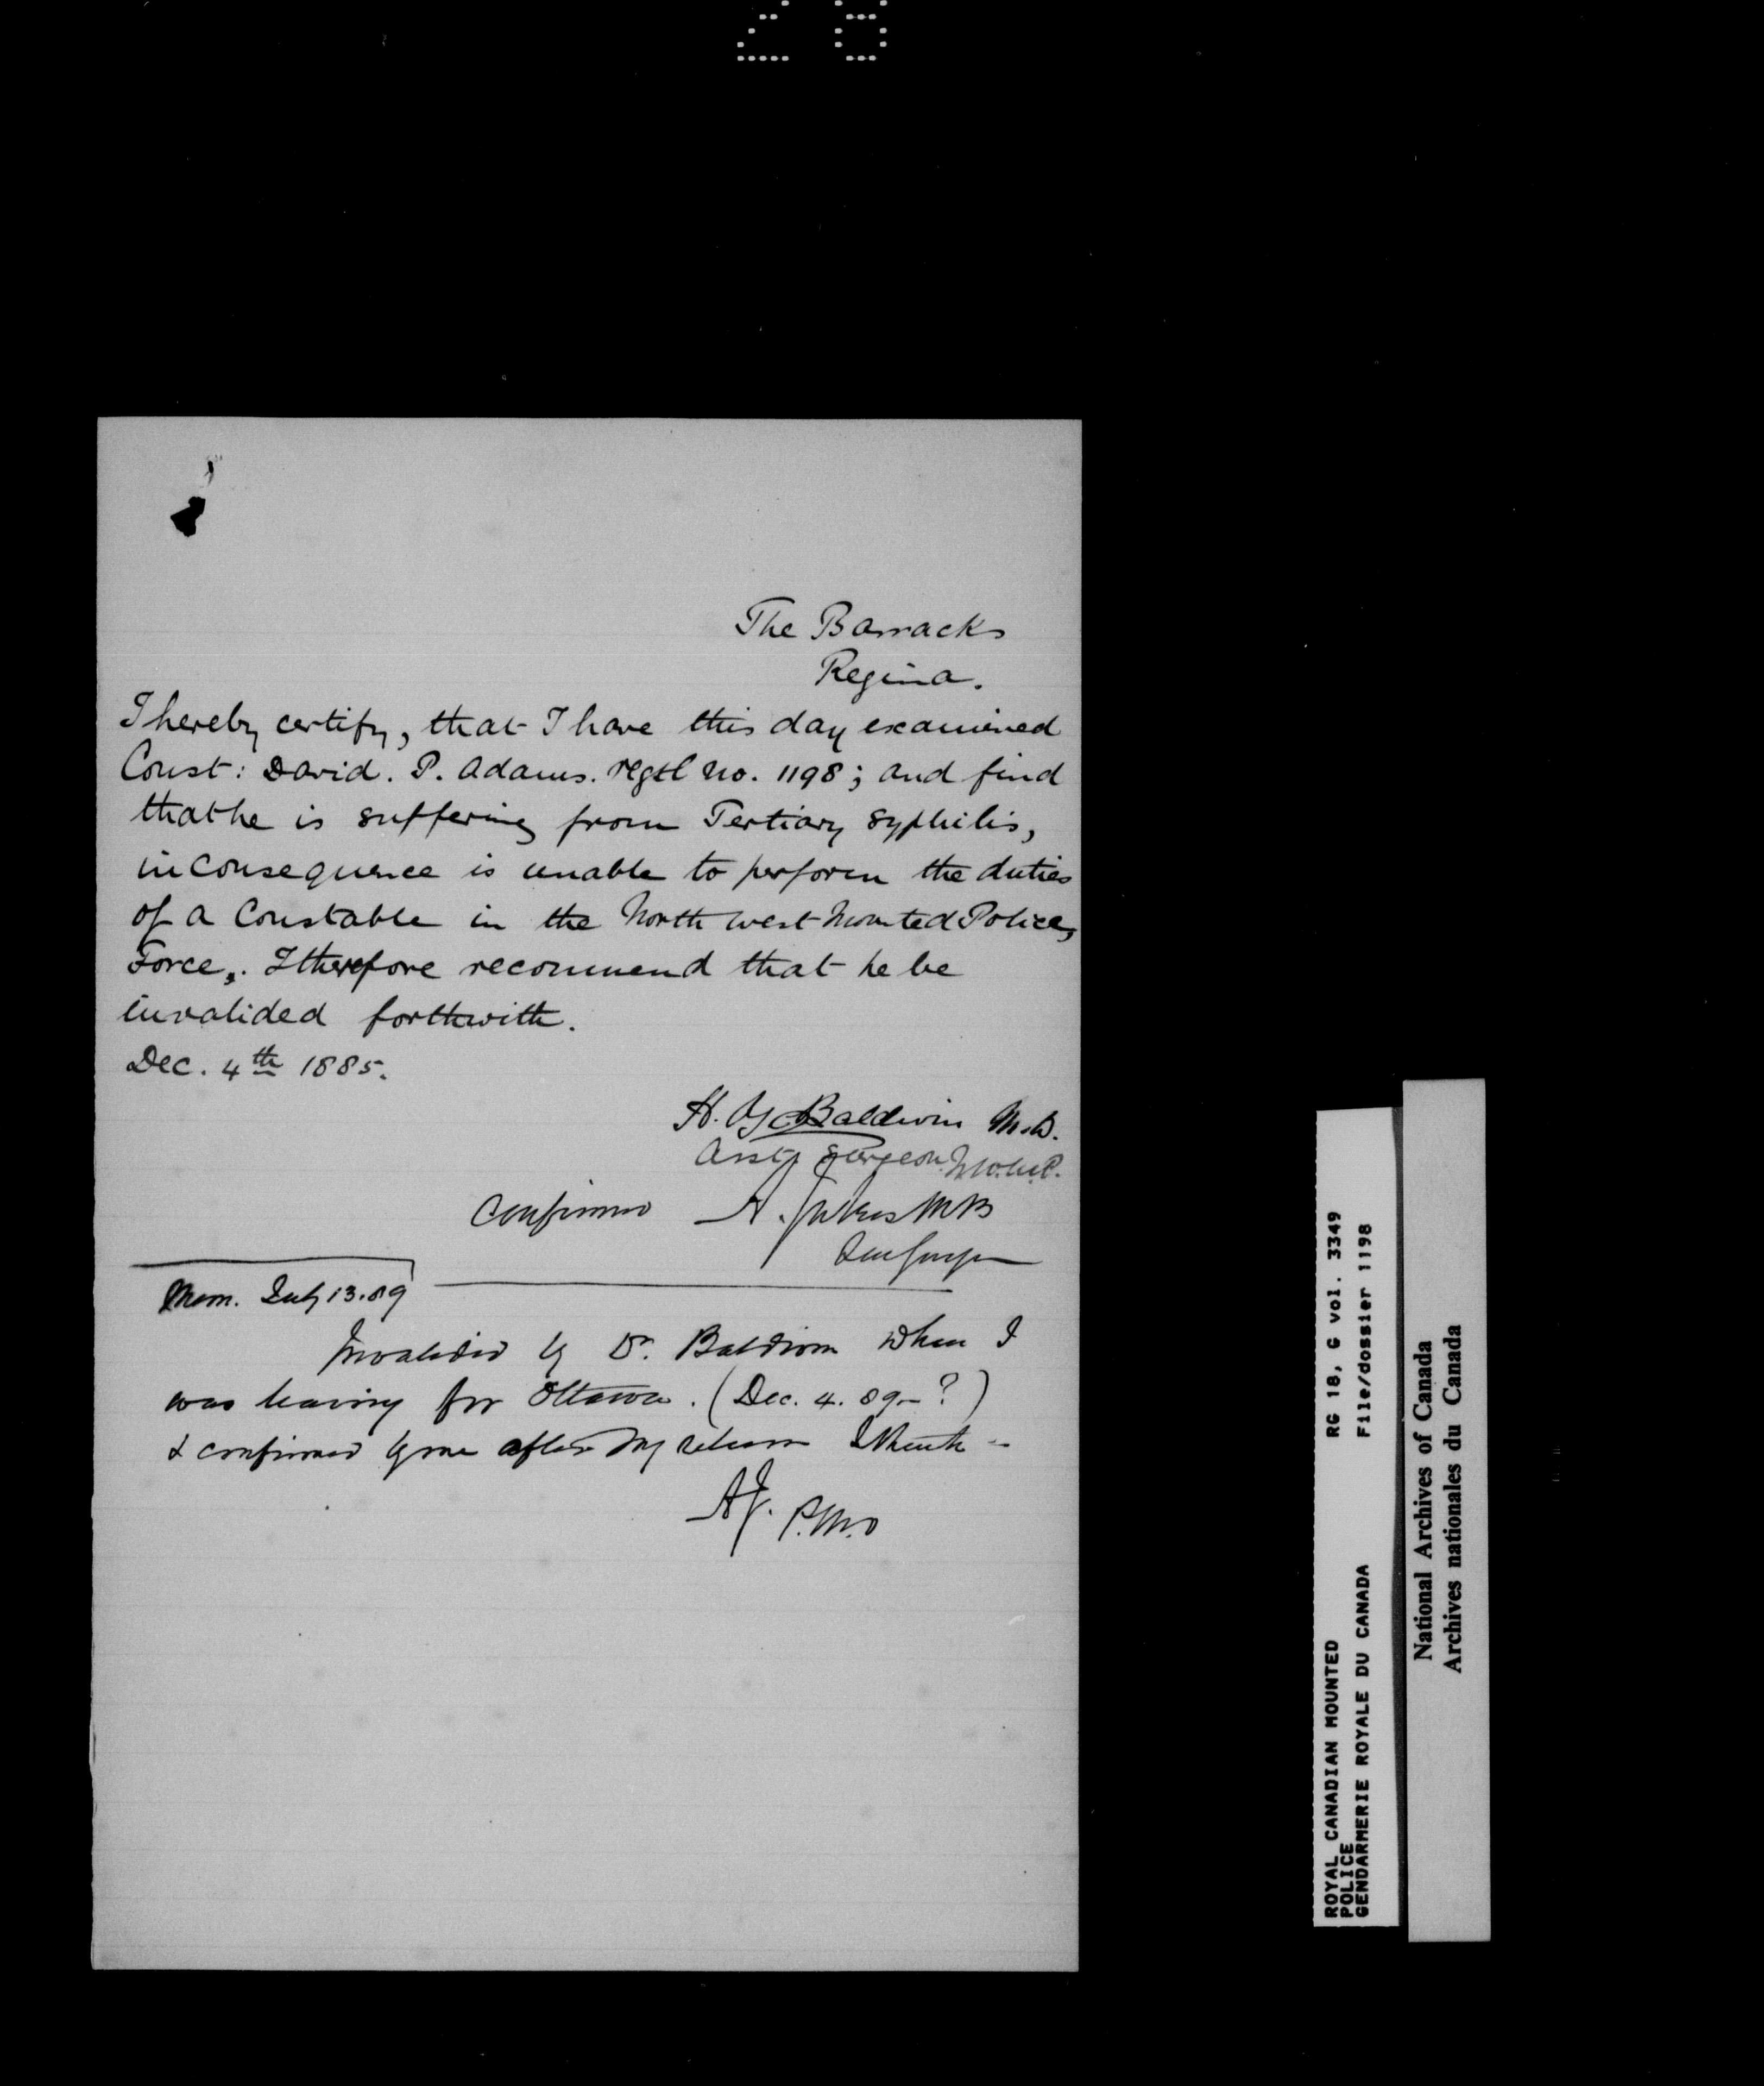 28
The Barracks
Regina.
I hereby certify, that I have this day examined
Const: David. P. Adams. regtl no. 1198; and find
that he is suffering from Tertiary Syphilis,
in consequence is unable to perform the duties
of a Constable in the North West Mounted Police,
Force,. I therefore recommend that he be
invalided forthwith.
Dec. 4th 1885.
H. Baldwin M.D.
Asst Surgeon N.W.M.P.
Confirmed A. Jukes MB
Mem. July 13.89
Invalided by Dr. Baldwin when I
was leaving for Ottawa. (Dec. 4. 89-?)
& confirmed by me after my return I think -
AJ. P.M.O
ROYAL CANADIAN MOUNTED
POLICE
GENDARMERIE ROYALE DU CANADA
RG 18, G vol. 3349
File/dossier 1198
National Archives of Canada
Archives nationales du Canada